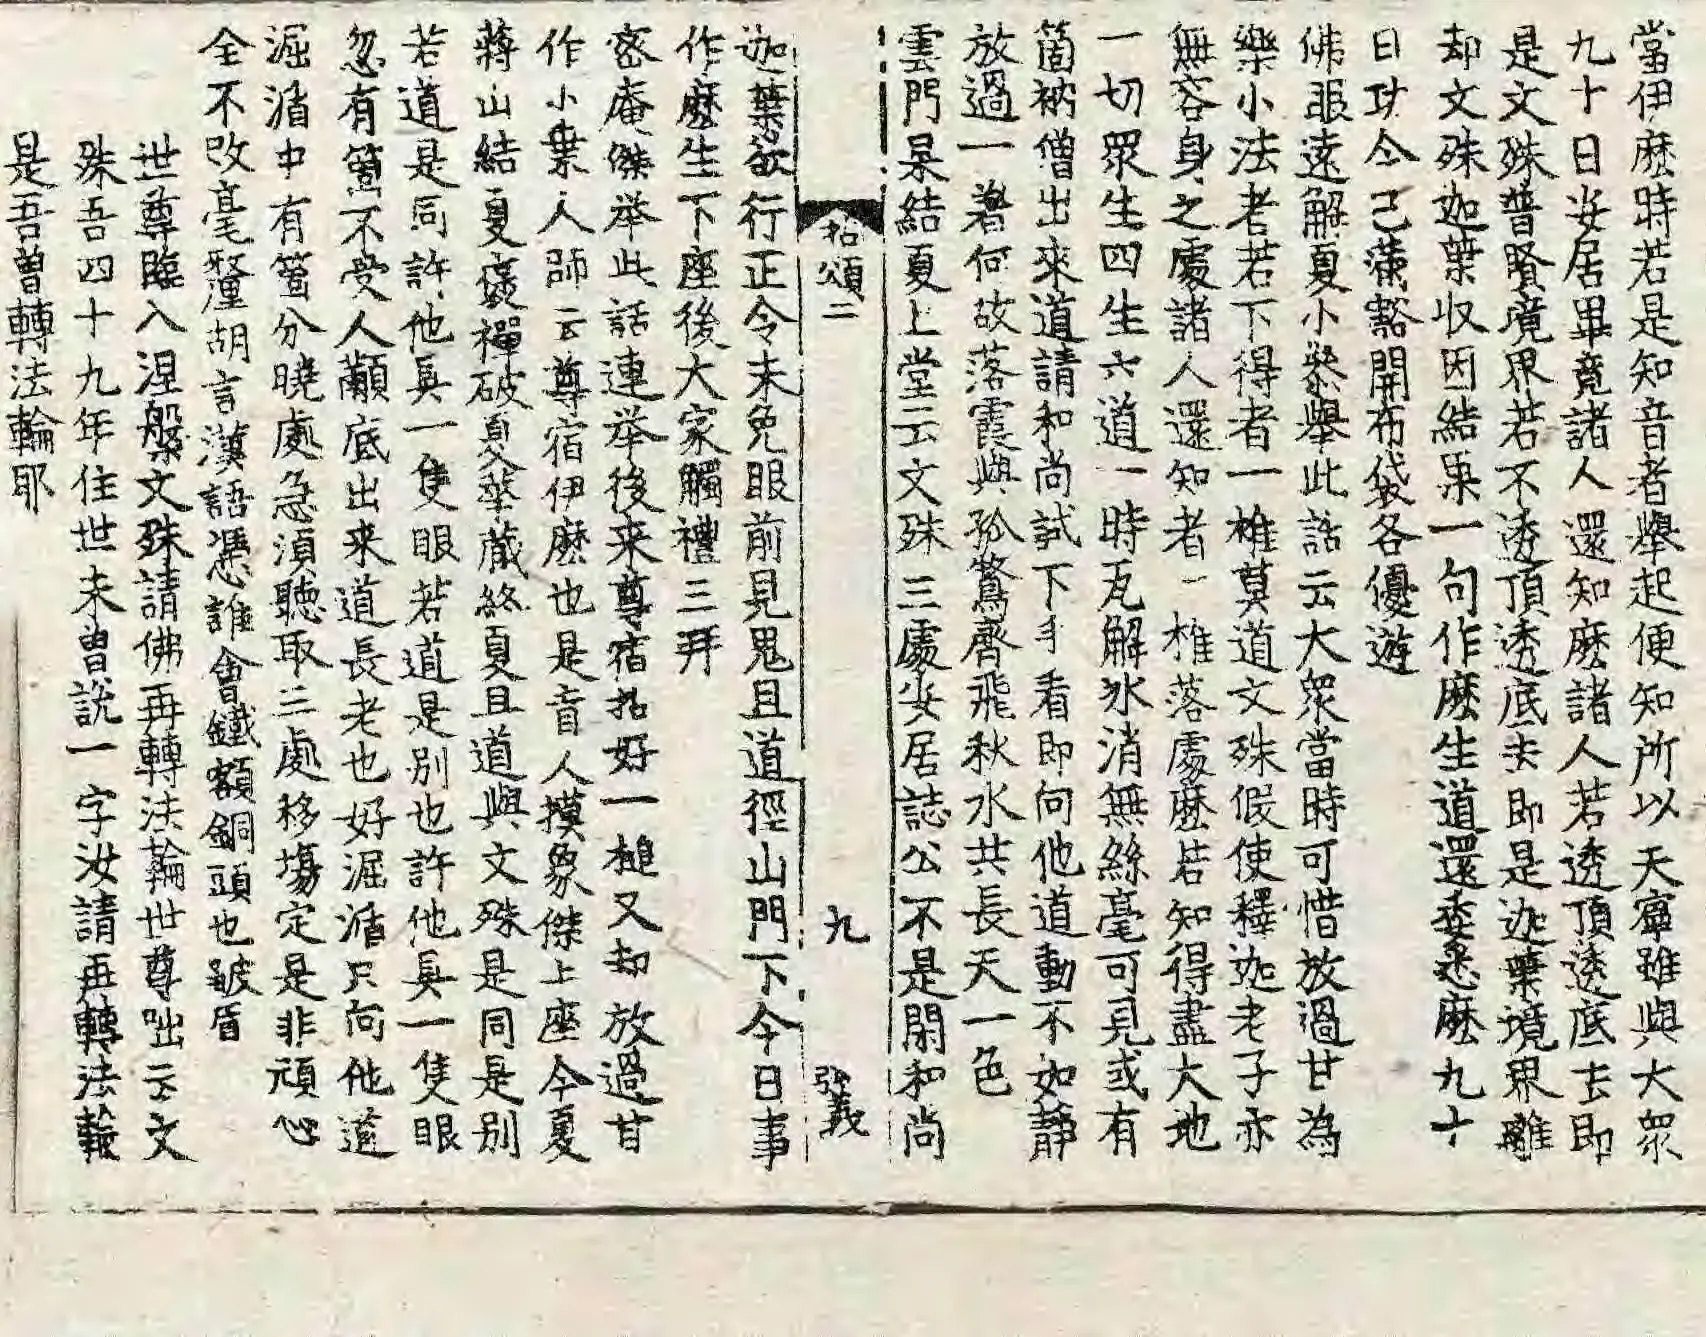 當伊麽時若是知音者舉起便知所以天寧雖與大眾
九十日安居畢竟諸人還知麽諸人若透頂透底去即
是文殊普賢境界若不透頂透底去即是迦葉境界離
却文殊迦葉收因結果一句作麽生道還委悉麽九十
日功今已滿豁開布袋各優遊
佛眼遠解夏小叅舉此話云大眾當時可惜放過甘為
樂小法者若下得者一椎莫道文殊假使釋迦老子亦
無容身之處諸人還知者一椎落處麽若知得盡大地
一切眾生四生六道一時瓦解冰消無絲毫可見或有
箇衲僧出來道請和尚試下手看即向他道動不如靜
放過一著何故落霞與孤鶩齊飛秋水共長天一色
雲門杲結夏上堂云文殊三處安居誌公不是閑和尚
拈頌二
九
張義
迦葉欲行正令未免眼前見鬼且道徑山門下今日事
作麽生下座後大家觸禮三拜
密庵傑举此話連举後来尊宿拈好一槌又却放過甘
作小乗人師云尊宿伊麽也是盲人摸象傑上座今夏
蔣山結夏褒禪破夏華藏終夏且道與文殊是同是別
若道是同許他具一隻眼若道是別也許他具一隻眼
忽有箇不受人顢底出来道長老也好淈㳷只向他道
淈㳷中有箇分曉處急須聽取三處移場定是非頑心
全不改毫氂胡言漢語憑誰會鐵額銅頭也皺眉
世尊臨入涅槃文殊請佛再轉法輪世尊咄云文
殊吾四十九年住世未曾說一字汝請再轉法輪
是吾曾轉法輪耶